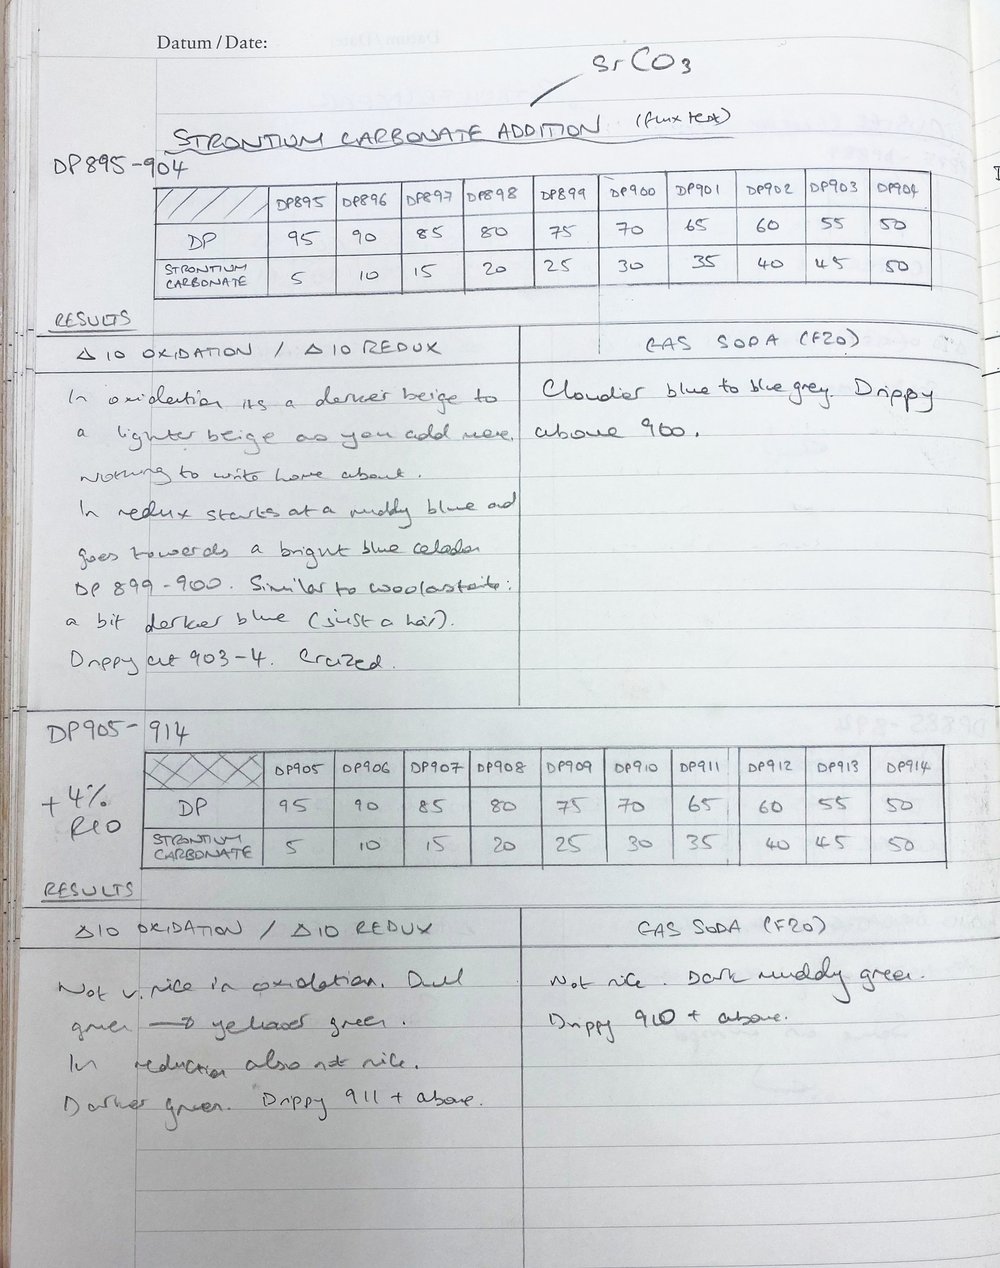 Datum / Date:
SrCO3
STRONTIUM CARBONATE ADDITION (flux test)
DP895-904
DP895 DP896 DP897 DP898 DP899 DP900 DP901 DP902 DP903 DP904
DP 95 90 85 80 75 70 65 60 55 50
STRONTIUM CARBONATE 5 10 15 20 25 30 35 40 45 50
RESULTS
Δ10 OXIDATION / Δ10 REDUX
In oxidation its a darker beige to
a lighter beige as you add more.
Nothing to write home about.
In redux starts at a muddy blue and
goes towards a bright blue celadon
DP 899-900. Similar to woolastonite:
a bit darker blue (just a hair).
Drippy at 903-4. Crazed.
GAS SODA (F20)
Cloudier blue to blue grey. Drippy
above 900.
DP905-914
+4%
RIO
DP905 DP906 DP907 DP908 DP909 DP910 DP911 DP912 DP913 DP914
DP 95 90 85 80 75 70 65 60 55 50
STRONTIUM CARBONATE 5 10 15 20 25 30 35 40 45 50
RESULTS
Δ10 OXIDATION / Δ10 REDUX
Not v. nice in oxidation. Dull
green → yellower green.
In reduction also not nice.
Darker green. Drippy 911 + above.
GAS SODA (F20)
Not nice. Dark muddy green.
Drippy 910 + above.